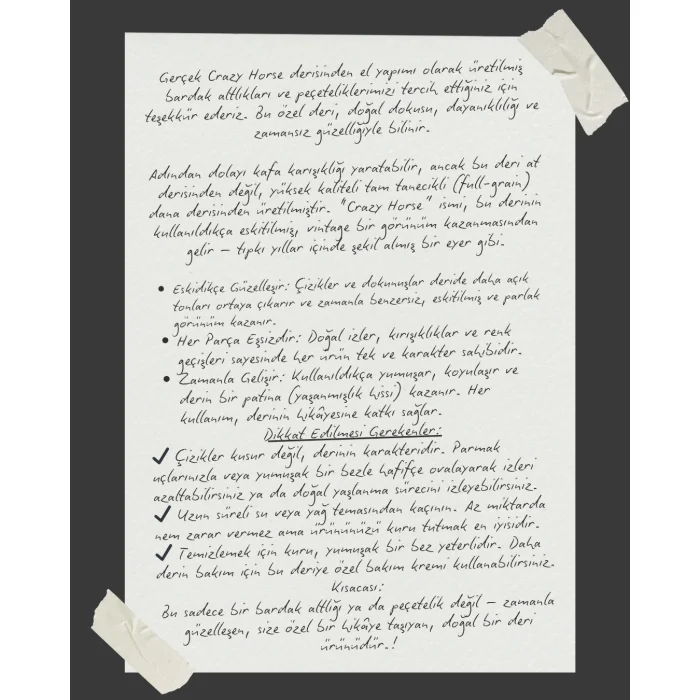 Gerçek Crazy Horse derisinden el yapımı olarak üretilmiş
bardak altlıkları ve peçeteliklerimizi tercih ettiğiniz için
teşekkür ederiz. Bu özel deri, doğal dokusu, dayanıklılığı ve
zamansız güzelliğiyle bilinir.
Adından dolayı kafa karışıklığı yaratabilir, ancak bu deri at
derisinden değil, yüksek kaliteli tam tanecikli (full-grain)
dana derisinden üretilmiştir. "Crazy Horse" ismi, bu derinin
kullanıldıkça eskitilmiş, vintage bir görünüm kazanmasından
gelir – tıpkı yıllar içinde şekil almış bir eyer gibi.
• Eskidikçe Güzelleşir: Çizikler ve dokunuşlar deride daha açık
tonları ortaya çıkarır ve zamanla benzersiz, eskitilmiş ve parlak
görünüm kazanır.
• Her Parça Eşsizdir: Doğal izler, kırışıklıklar ve renk
geçişleri sayesinde her ürün tek ve karakter sahibidir.
• Zamanla Gelişir: Kullanıldıkça yumuşar, koyulaşır ve
derin bir patina (yaşanmışlık hissi) kazanır. Her
kullanım, derinin hikâyesine katkı sağlar.
Dikkat Edilmesi Gerekenler:
✓ Çizikler kusur değil, derinin karakteridir. Parmak
uçlarınızla veya yumuşak bir bezle hafifçe ovalayarak izleri
azaltabilirsiniz ya da doğal yaşlanma sürecini izleyebilirsiniz.
✓ Uzun süreli su veya yağ temasından kaçının. Az miktarda
nem zarar vermez ama ürününüzü kuru tutmak en iyisidir.
✓ Temizlemek için kuru, yumuşak bir bez yeterlidir. Daha
derin bakım için bu deriye özel bakım kremi kullanabilirsiniz.
Kısacası:
Bu sadece bir bardak altlığı ya da peçetelik değil – zamanla
güzelleşen, size özel bir hikâye taşıyan, doğal bir deri
ürünüdür.!